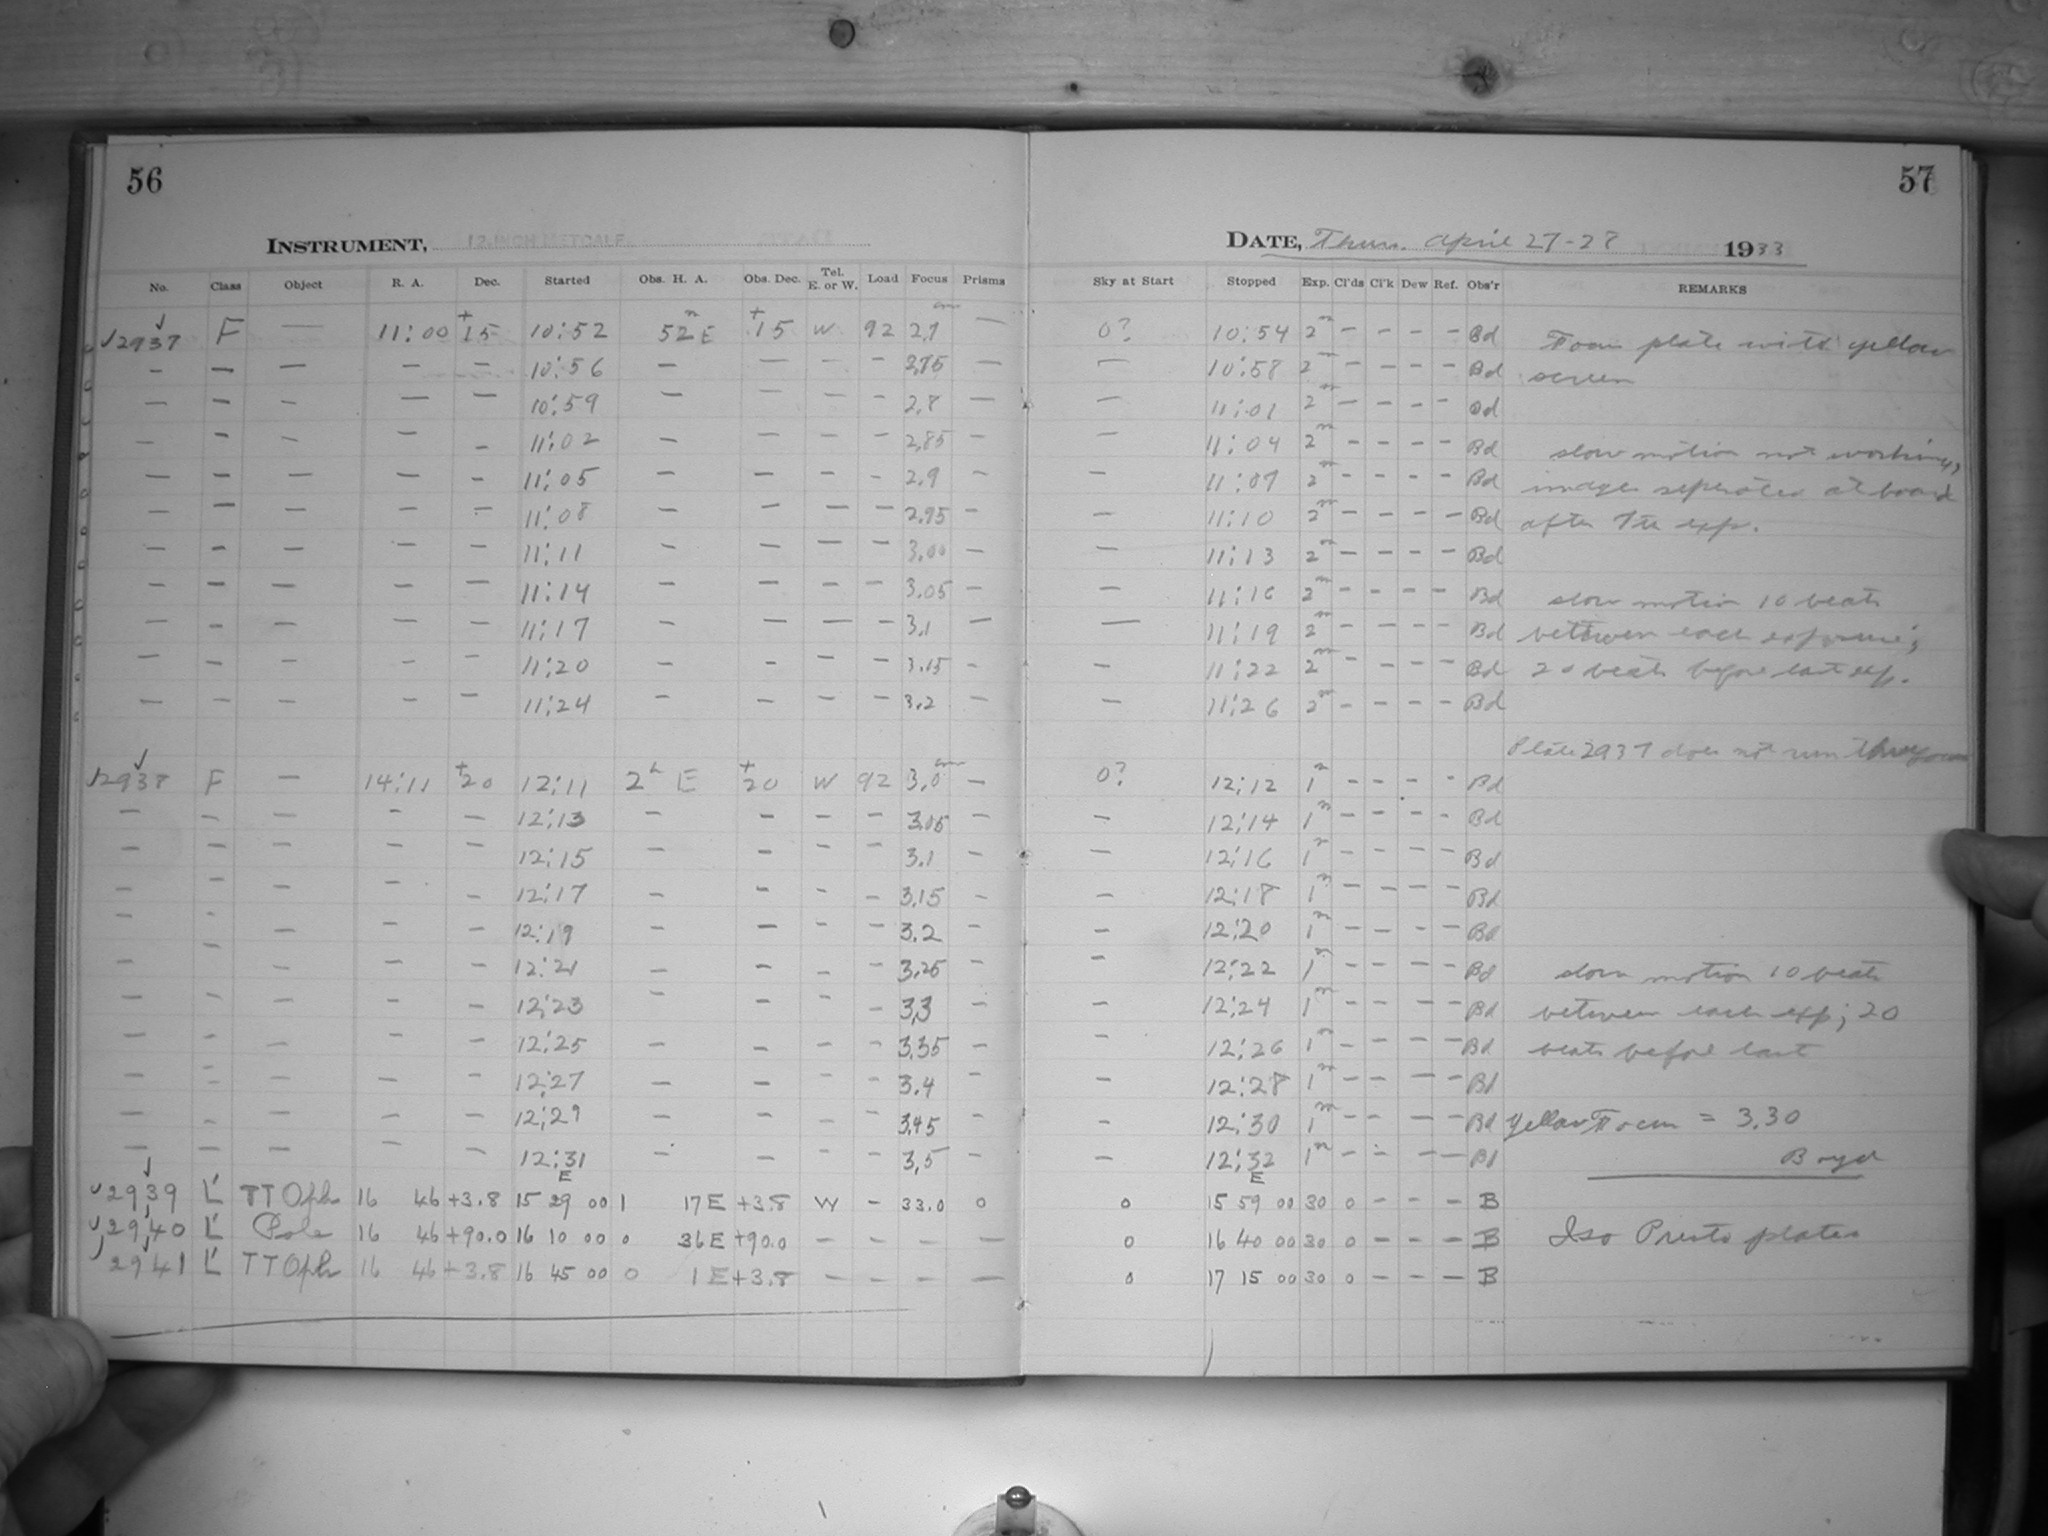 56
57
INSTRUMENT, 12-INCH METCALF
DATE, Thurs. April 27-28 1933
No. Class Object R. A. Dec. Started Obs. H. A. Obs. Dec. Tel. E. or W. Load Focus Prisms Sky at Start Stopped Exp. Cl'ds Cl'k Dew Ref. Obs'r REMARKS
√2937 F — 11:00 +15 10:52 52m E +15 W 92 2.7 cm — 0? 10:54 2m — — — — Bd Focus plate with yellow
— — — — — 10:56 — — — — 2.75 — — 10:58 2m — — — — Bd screen
— — — — — 10:59 — — — — 2.8 — — 11:01 2m — — — — Bd
— — — — — 11:02 — — — — 2.85 — — 11:04 2m — — — — Bd slow motion not working,
— — — — — 11:05 — — — — 2.9 — — 11:07 2m — — — — Bd images seperated at board
— — — — — 11:08 — — — — 2.95 — — 11:10 2m — — — — Bd after 7th exp.
— — — — — 11:11 — — — — 3.00 — — 11:13 2m — — — — Bd
— — — — — 11:14 — — — — 3.05 — — 11:16 2m — — — — Bd slow motion 10 beats
— — — — — 11:17 — — — — 3.1 — — 11:19 2m — — — — Bd between each exposure;
— — — — — 11:20 — — — — 3.15 — — 11:22 2m — — — — Bd 20 beats before last exp.
— — — — — 11:24 — — — — 3.2 — — 11:26 2m — — — — Bd
Plate 2937 does not run through focus
√2938 F — 14:11 +20 12:11 2h E +20 W 92 3.0 cm — 0? 12:12 1m — — — — Bd
— — — — — 12:13 — — — — 3.05 — — 12:14 1m — — — — Bd
— — — — — 12:15 — — — — 3.1 — — 12:16 1m — — — — Bd
— — — — — 12:17 — — — — 3.15 — — 12:18 1m — — — — Bd
— — — — — 12:19 — — — — 3.2 — — 12:20 1m — — — — Bd
— — — — — 12:21 — — — — 3.25 — — 12:22 1m — — — — Bd slow motion 10 beats
— — — — — 12:23 — — — — 3.3 — — 12:24 1m — — — — Bd between each exp; 20
— — — — — 12:25 — — — — 3.35 — — 12:26 1m — — — — Bd beats before last
— — — — — 12:27 — — — — 3.4 — — 12:28 1m — — — — Bd
— — — — — 12:29 — — — — 3.45 — — 12:30 1m — — — — Bd Yellow Focus = 3.30
— — — — — 12:31 — — — — 3.5 — — 12:32 1m — — — — Bd Boyd
E E
√2939 L' TT Oph 16 46 +3.8 15 29 00 1 17 E +3.8 W — 33.0 0 0 15 59 00 30 0 — — — B
√2940 L' Pole 16 46 +90.0 16 10 00 0 36 E +90.0 — — — — 0 16 40 00 30 0 — — — B Iso Presto plates
√2941 L' TT Oph 16 46 +3.8 16 45 00 0 1 E +3.8 — — — — 0 17 15 00 30 0 — — — B